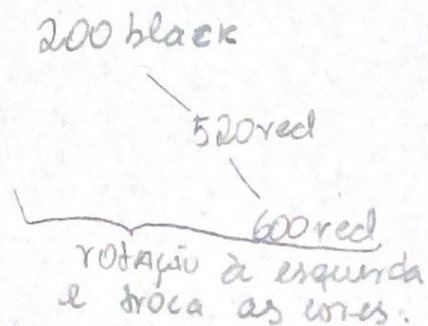 200 black
520 red
600 red
rotação à esquerda
e troca as cores.